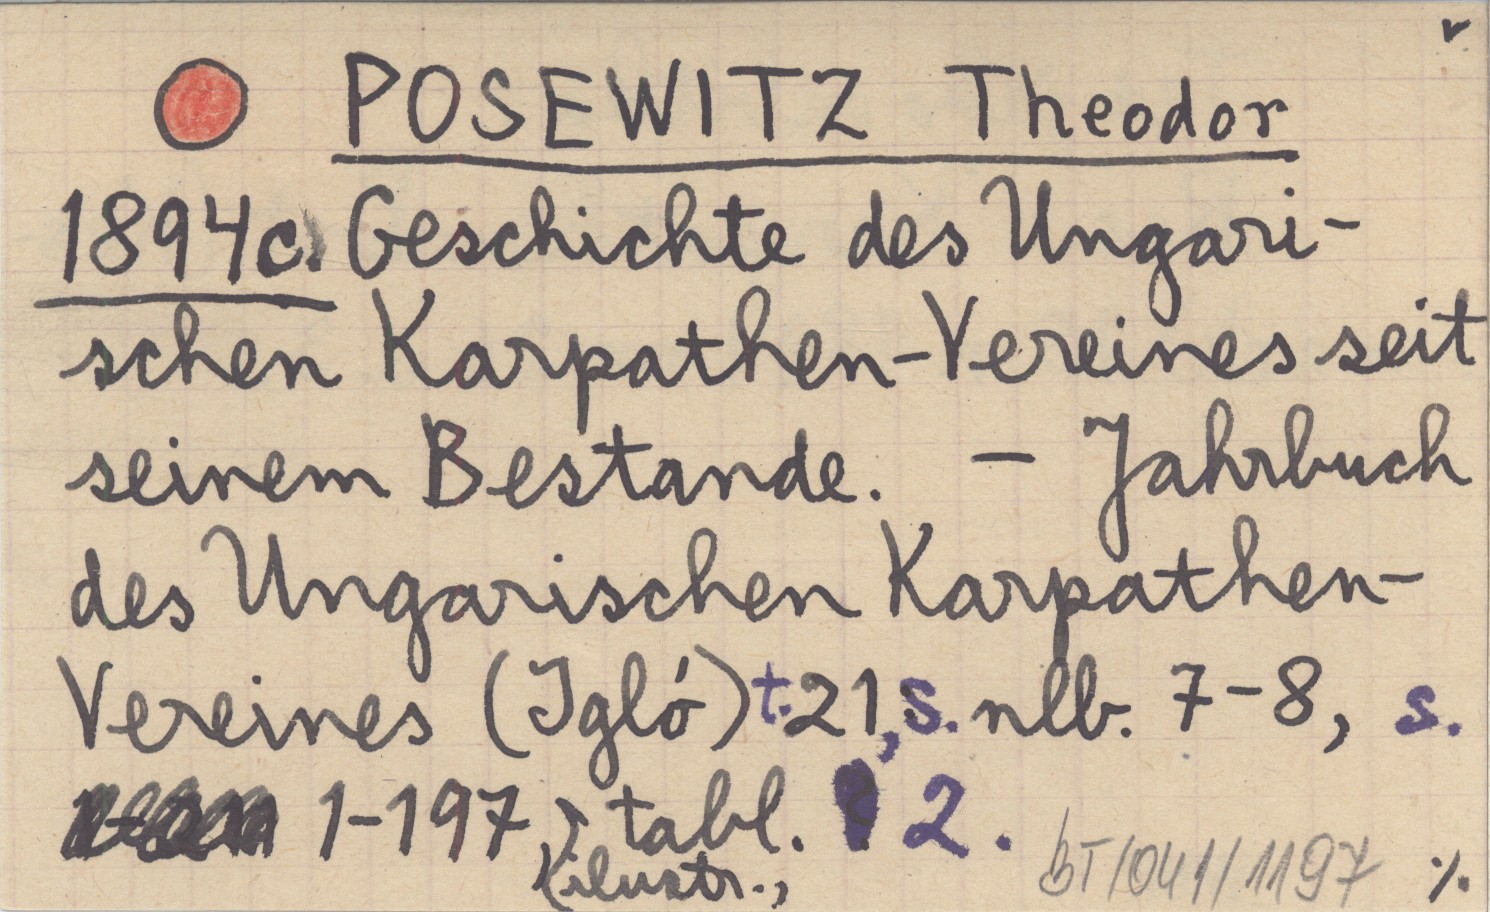 POSEWITZ Theodor
1894c. Geschichte des Ungari-
schen Karpathen-Vereines seit
seinem Bestande. – Jahrbuch
des Ungarischen Karpathen-
Vereines (Igló) t. 21, s. nlb. 7–8, s.
1–197, tabl. 2.
ilustr.,
BT/041/1197 ·/.